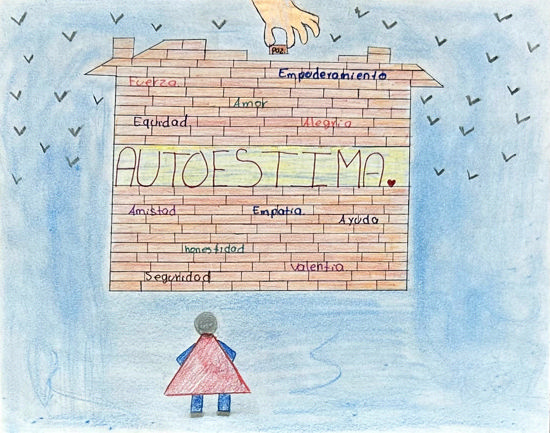 Paz.
Empoderamiento
Fuerza.
Amor
Equidad
Alegria
AUTOESTIMA.
Amistad
Empatia.
Ayuda
honestidad
Valentia
Seguridad